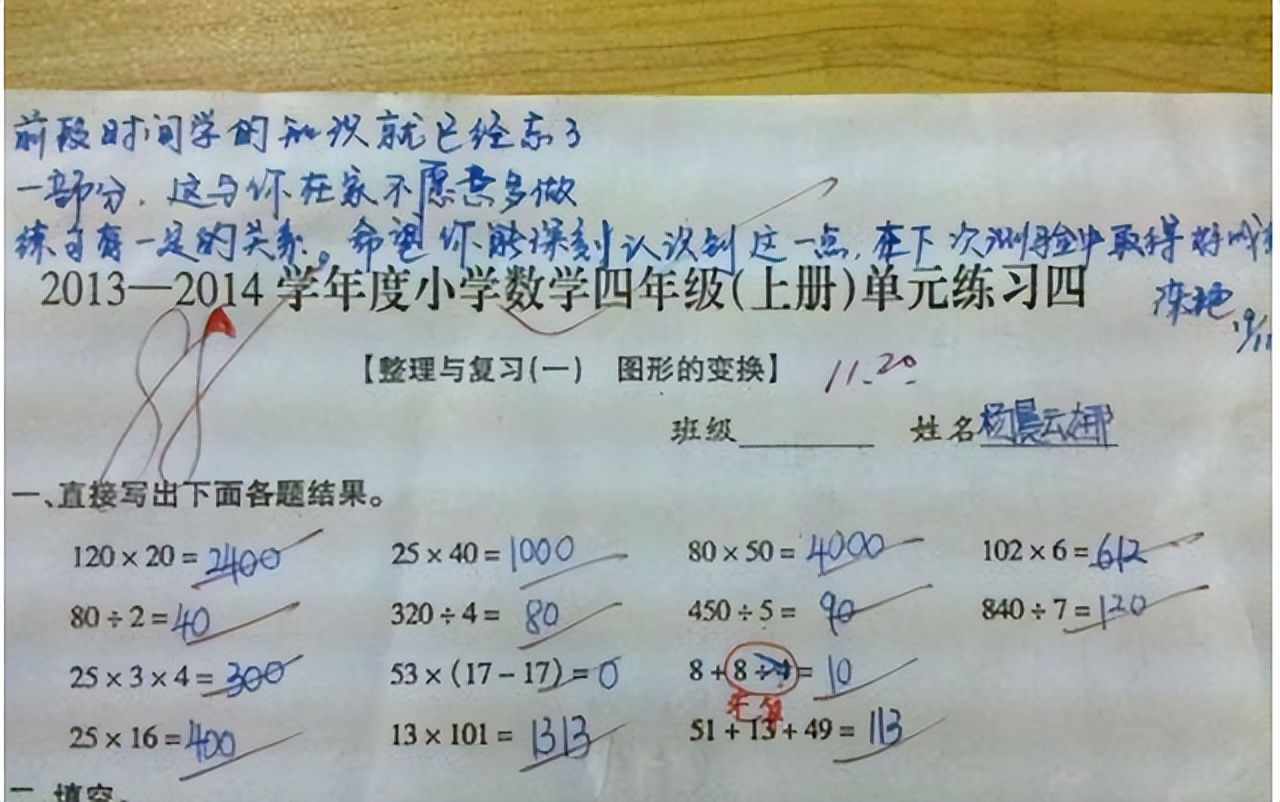 前段时间学的知识就已经忘了
一部分,这与你在家不愿意多做
练习有一定的关系。希望你能深刻认识到这一点,在下次测验中取得好成
2013—2014学年度小学数学四年级(上册)单元练习四
88
【整理与复习(一) 图形的变换】 11.20
班级 姓名杨晨云娜
一、直接写出下面各题结果。
120×20=2400 25×40=1000 80×50=4000 102×6=612
80÷2=40 320÷4=80 450÷5=90 840÷7=120
25×3×4=300 53×(17-17)=0 8+8÷4=10
先算
25×16=400 13×101=1313 51+13+49=113
二 填空。